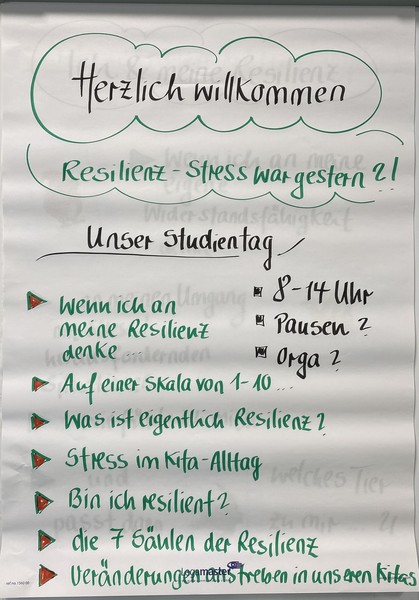 Herzlich willkommen
Resilienz - Stress war gestern ?!
Unser Studientag
8-14 Uhr
Pausen ?
Orga ?
Wenn ich an
meine Resilienz
denke ...
Auf einer Skala von 1-10 ...
Was ist eigentlich Resilienz ?
Stress im Kita-Alltag
Bin ich resilient ?
die 7 Säulen der Resilienz
Veränderungen anstreben in unseren Kitas